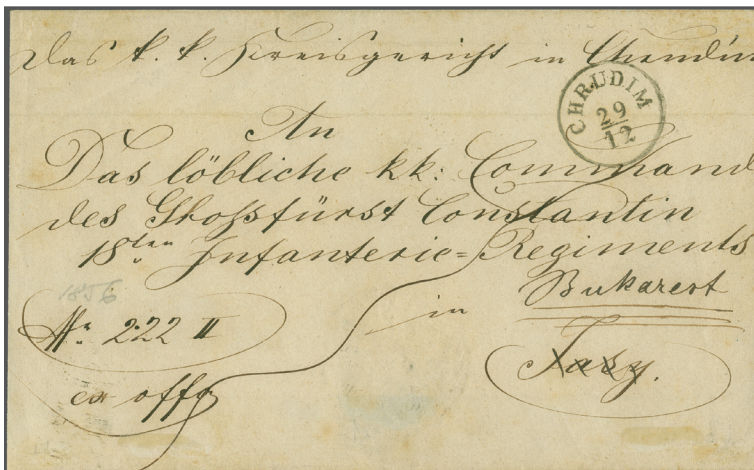 Das k. k. Kreisgericht in Chrudim
CHRUDIM
29
12
An
Das löbliche kk: Command
des Großfürst Constantin
18ten Infanterie=Regiments
1856
in Bukarest
Nr: 222 II
Jassy.
ex offo